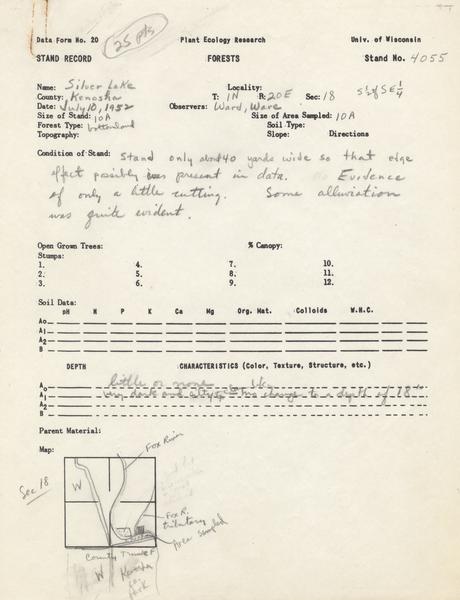 25 pts
Data Form No. 20 Plant Ecology Research Univ. of Wisconsin
STAND RECORD FORESTS Stand No. 4055
Name: Silver Lake Locality:
County: Kenosha T: 1N R: 20E Sec: 18 S ½ of SE ¼
Date: July 10, 1952 Observers: Ward, Ware
Size of Stand: 10A Size of Area Sampled: 10A
Forest Type: bottomland Soil Type:
Topography: Slope: Directions
Condition of Stand: Stand only about 40 yards wide so that edge
effect possibly was present in data. Evidence
of only a little cutting. Some alluviation
was quite evident.
Open Grown Trees: % Canopy:
Stumps:
1. 4. 7. 10.
2. 5. 8. 11.
3. 6. 9. 12.
Soil Data:
pH N P K Ca Mg Org. Mat. Colloids W.H.C.
A₀
A₁
A₂
B
DEPTH CHARACTERISTICS (Color, Texture, Structure, etc.)
A₀ little or none
A₁ very dark and no change to a depth of 18"
A₂
B
Parent Material:
Map:
Fox River
Sec 18
W
Fox R.
tributary
Area sampled
County Trunk F
W Kenosha
co.
park